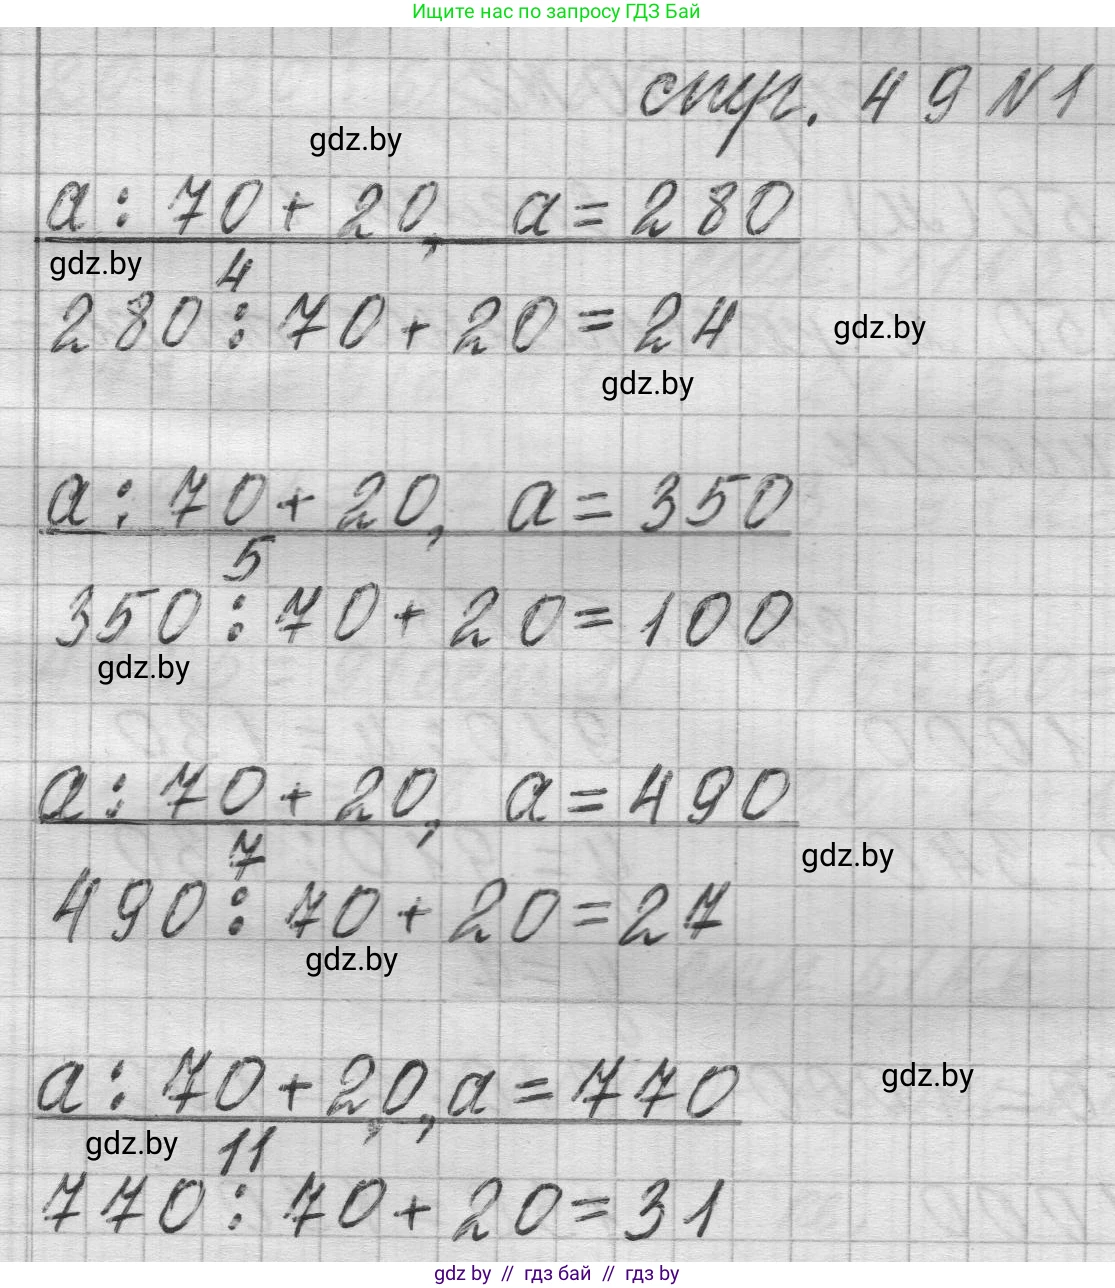 Ищите нас по запросу ГДЗ Бай
стр. 49 №1
gdz.by
a : 70 + 20, a = 280
gdz.by
4
280 : 70 + 20 = 24
gdz.by
gdz.by
a : 70 + 20, a = 350
5
350 : 70 + 20 = 100
gdz.by
a : 70 + 20, a = 490
gdz.by
7
490 : 70 + 20 = 27
gdz.by
a : 70 + 20, a = 770
gdz.by
gdz.by
11
770 : 70 + 20 = 31
gdz by // гдз бай // гдз by